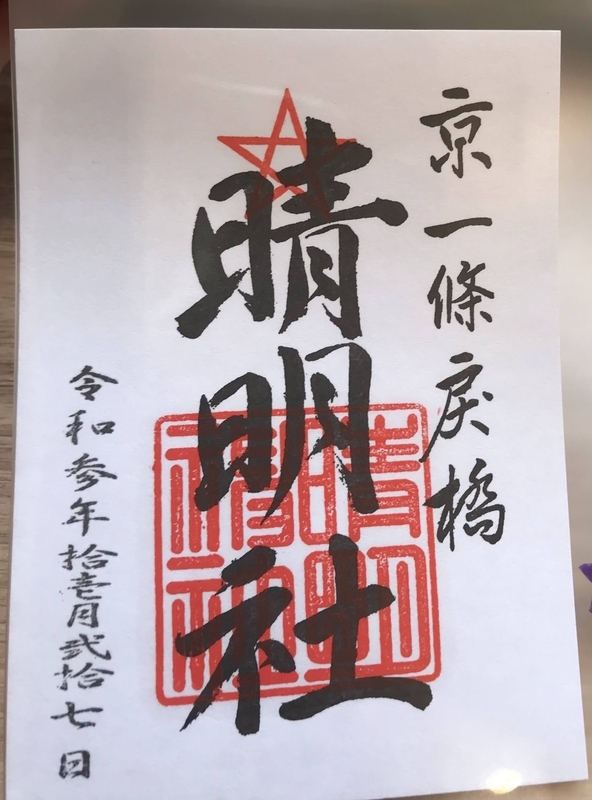 京一條戻橋
晴明社
令和参年拾壱月弐拾七日